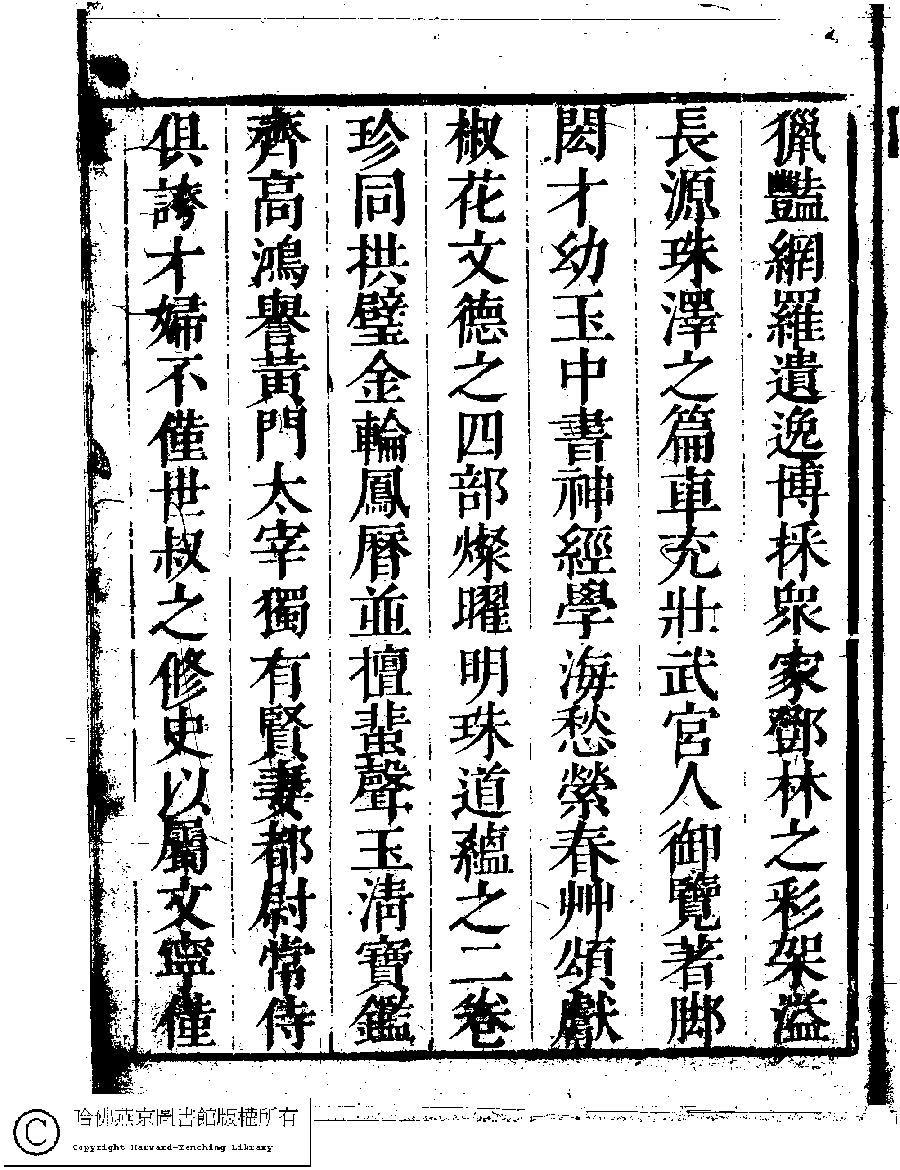 獵豔網羅遺逸博採衆家鄧林之彩架溢
長源珠澤之篇車充壯武宮人御覽著脚
閎才幼玉中書神經學海愁縈春艸頌獻
椒花文德之四部燦曜明珠道蘊之二卷
珍同拱璧金輪鳳曆並擅蜚聲玉淸寶鑑
齊高鴻譽黃門太宰獨有賢妻都尉常侍
俱誇才婦不僅世叔之修史以屬文寧僅
哈佛燕京圖書館版權所有
Copyright Harvard-Yenching Library